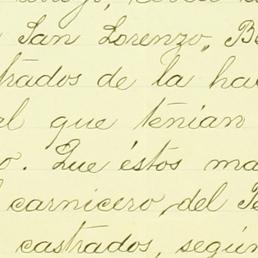 San Lorenzo, B
trados de la ha
el que tenían
o. Que éstos ma
l carnicero, del B
castrados, según